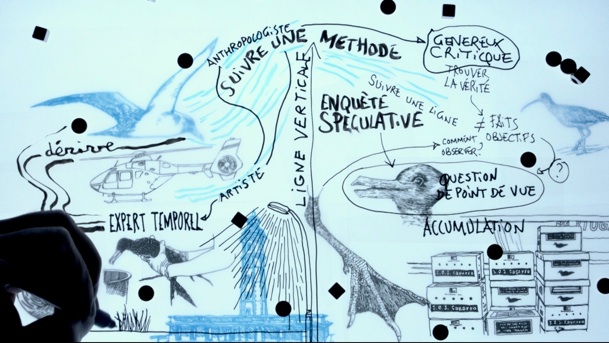 ANTHROPOLOGISTE
SUIVRE UNE METHODE
GENEREUX
CRITICQUE
TROUVER
LA VÉRITÉ
SUIVRE UNE LIGNE
ENQUÊTE
SPECULATIVE
≠ FAITS
OBJECTIFS
COMMENT
OBSERVER?
?
dérive
LIGNE VERTICALE
ARTISTE
QUESTION
DE POINT DE VUE
EXPERT TEMPOREL
ACCUMULATION